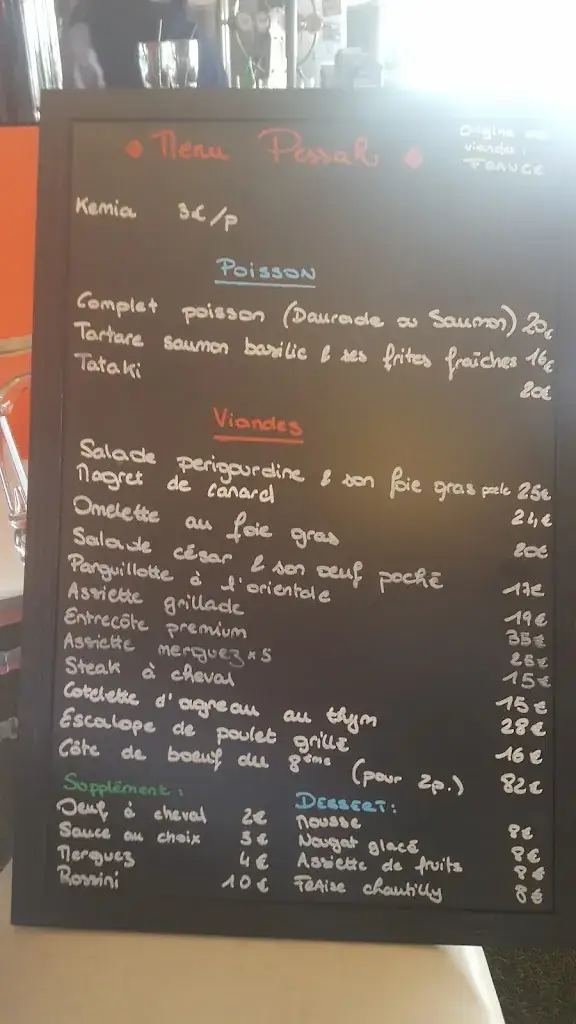 • Menu Pessah •
Origine des
viandes :
FRANCE
Kemia 3€/p
Poisson
Complet poisson (Daurade ou Saumon) 20€
Tartare saumon basilic & ses frites fraîches 16€
Tataki 20€
Viandes
Salade perigourdine & son foie gras poele 25€
Magret de canard 24€
Omelette au foie gras 20€
Salade césar & son oeuf poché 17€
Parguillotte à l'orientale 19€
Assiette grillade 35€
Entrecôte premium 28€
Assiette merguez x5 15€
Steak à cheval 15€
Cotelette d'agneau au thym 28€
Escalope de poulet grillé 16€
Côte de boeuf du 8ème (pour 2p.) 82€
Supplément :
Oeuf à cheval 2€
Sauce au choix 3€
Merguez 4€
Rossini 10€
DESSERT :
Mousse 8€
Nougat glacé 8€
Assiette de fruits 8€
Fraise chantilly 8€